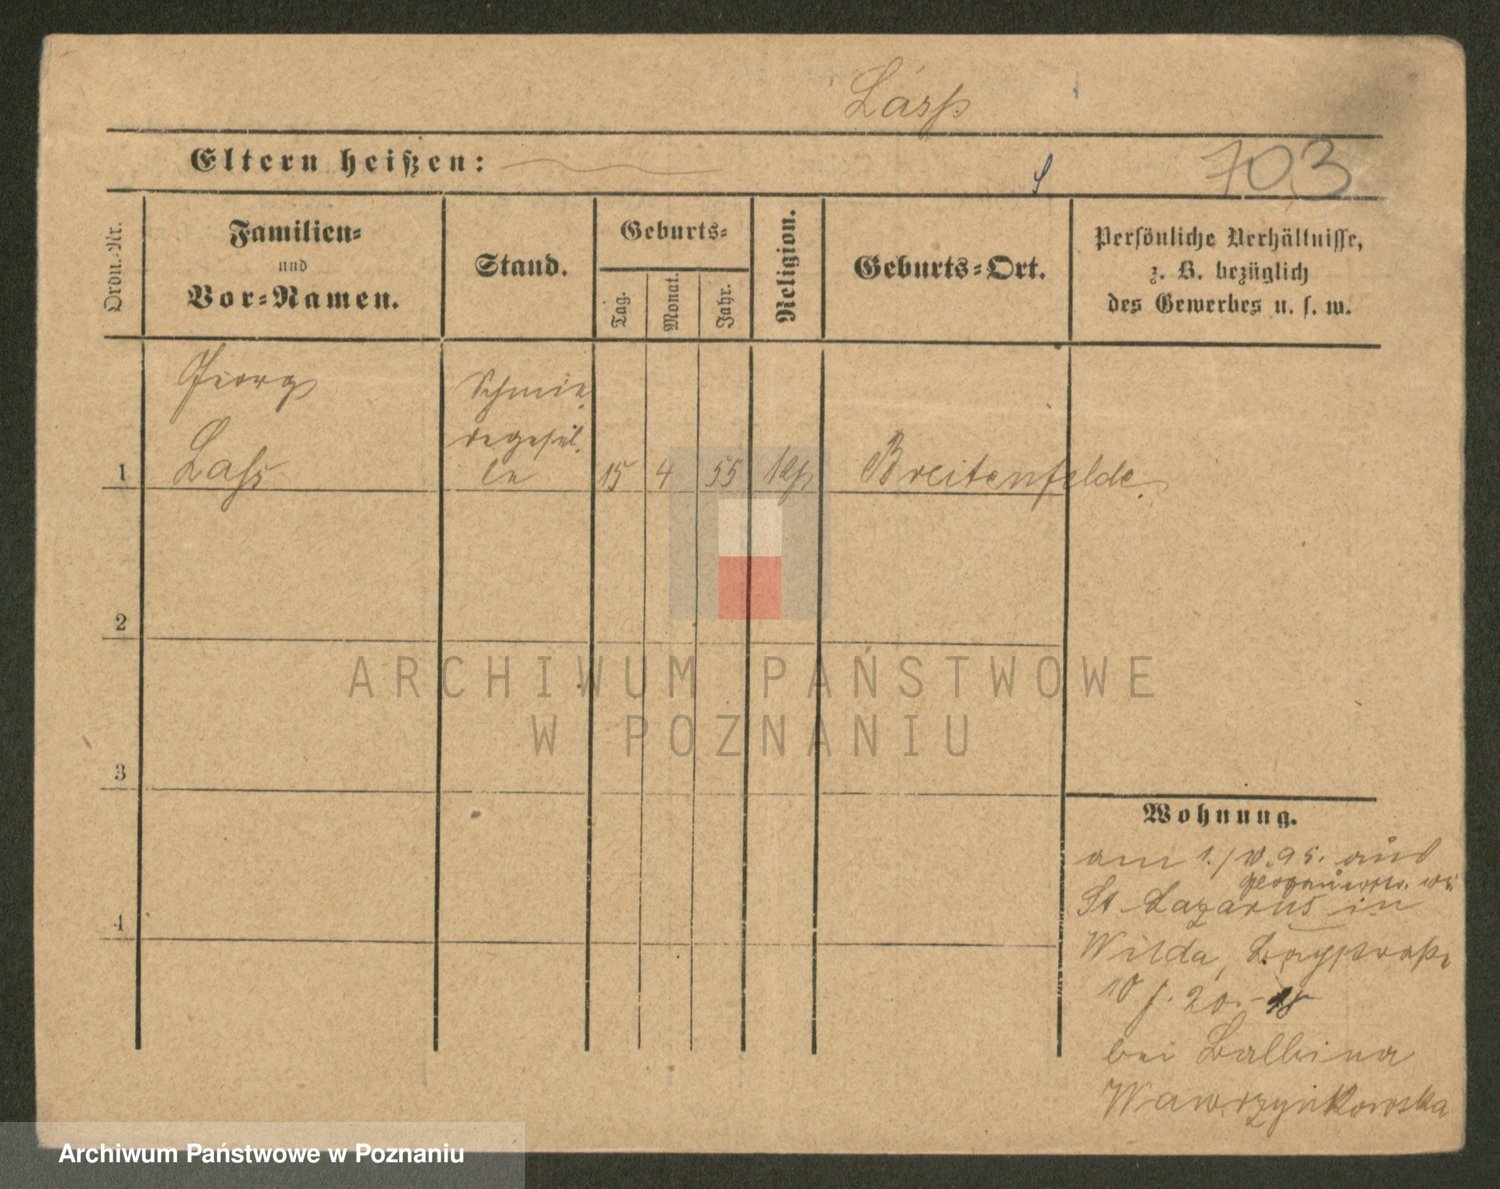 Lass
Eltern heißen:
703
Ordn.-Nr.
Familien-
und
Vor-Namen.
Stand.
Geburts-
Tag.
Monat.
Jahr.
Religion.
Geburts-Ort.
Persönliche Verhältnisse,
z. B. bezüglich
des Gewerbes u. s. w.
Georg
Schmie
degesel.
1 Lass le 15 4 55 Breitenfelde.
2
3
4
Wohnung.
am 1./ 95. aus
St Lazarus in
Wilda,
10 f. 20.
bei Balbina
Wawrzynkowska
ARCHIWUM PAŃSTWOWE
W POZNANIU
Archiwum Państwowe w Poznaniu